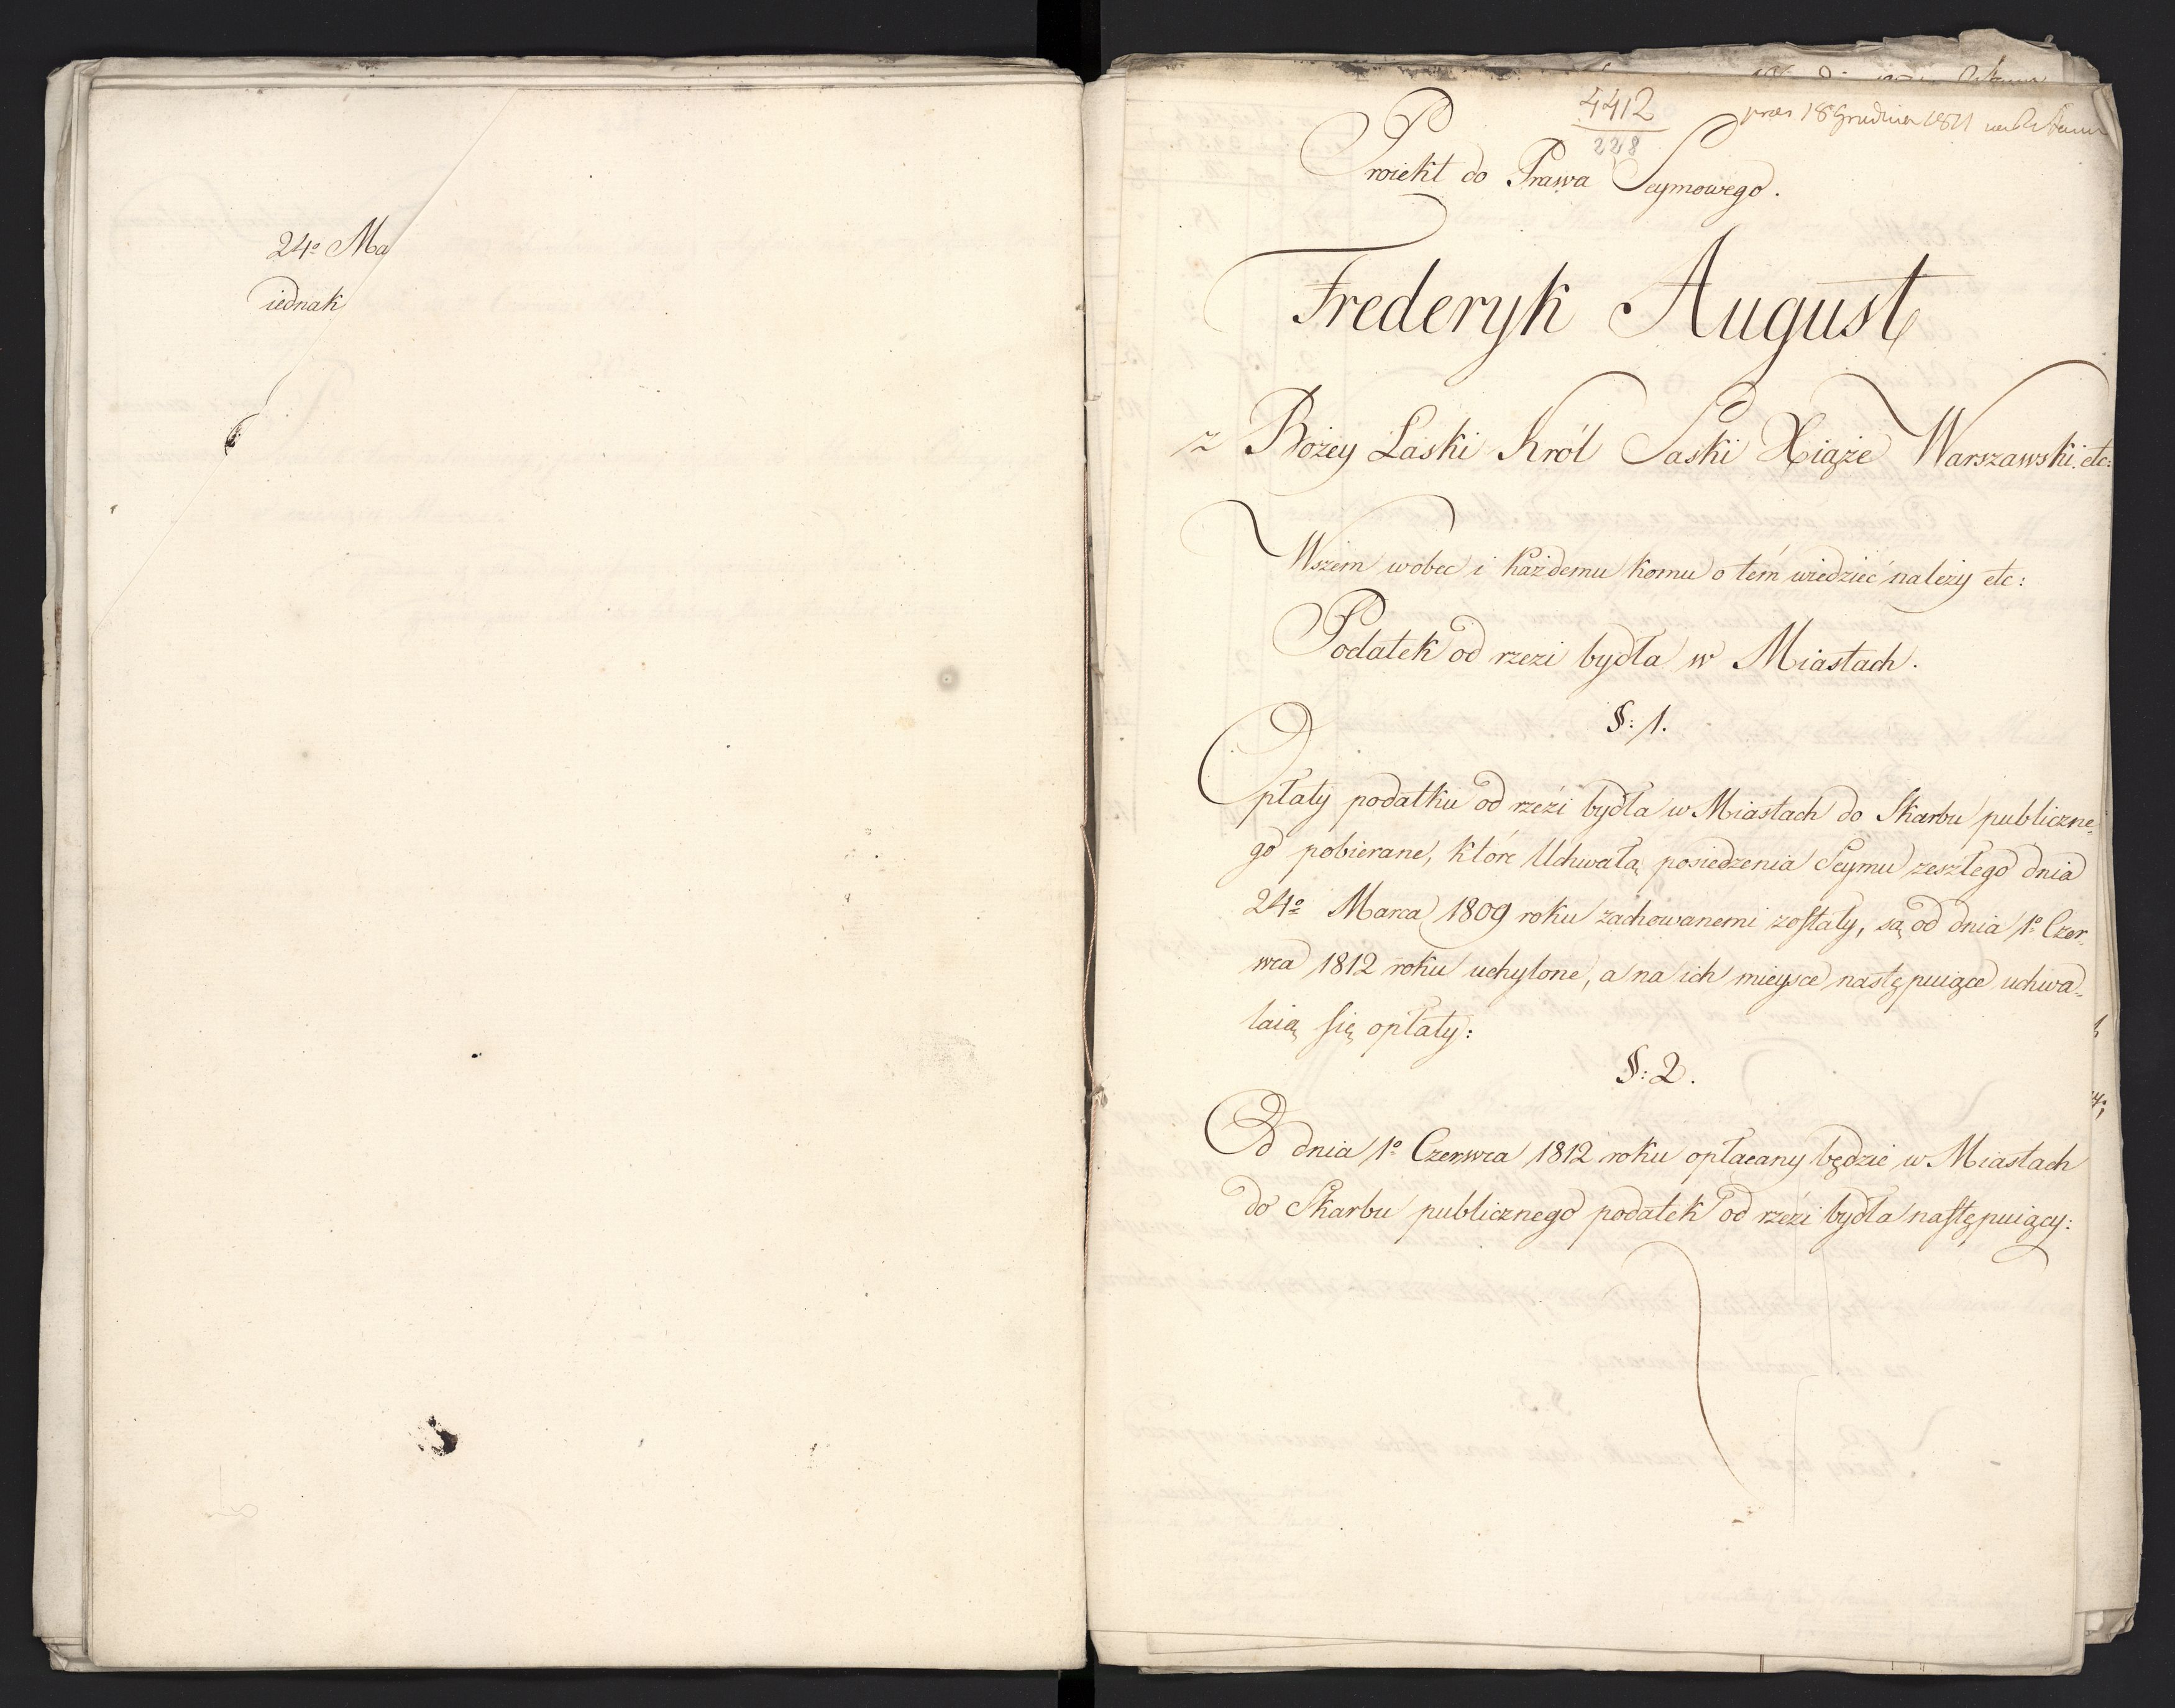 24º Ma
iednak
4412
228
18 Grudnia 1811
Proiekt do Prawa Seymowego.
Frederyk August
z Bożey Łaski Król Saski Xiąże Warszawski etc:
Wszem wobec i każdemu komu o tém wiedzieć należy etc:
Podatek od rzezi bydła w Miastach.
§: 1.
Opłaty podatku od rzezi bydła w Miastach do Skarbu publiczne=
go pobierane, które Uchwałą posiedzenia Seymu zeszłego dnia
24º Marca 1809 roku zachowanemi zostały, są od dnia 1º Czer=
wca 1812 roku uchylone, a na ich mieysce następuiące uchwa=
laią się opłaty:
§: 2.
Od dnia 1º Czerwca 1812 roku opłacany będzie w Miastach
do Skarbu publicznego podatek od rzezi bydła następuiący: